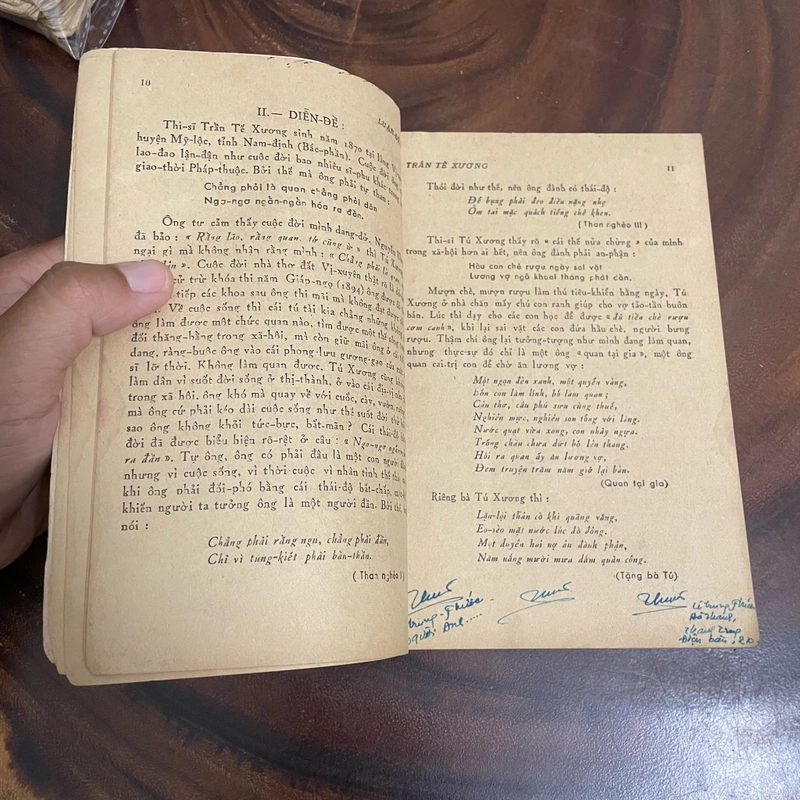 10
II.— DIỄN-ĐỀ :
LUẬN ĐỀ
Thi-sĩ Trần Tế Xương sinh năm 1870 tại làng
huyện Mỹ-lộc, tỉnh Nam-định (Bắc-phần). Cuộc đời
lao-đao lận-đận như cuộc đời bao nhiêu sĩ-phu khác trong
giao-thời Pháp-thuộc. Bởi thế mà ông phải tự than :
Chẳng phải là quan chẳng phải dân
Ngơ-ngơ ngẩn-ngẩn hóa ra đần.
Ông tự cảm thấy cuộc đời mình dang-dở. Nguyễn
đã bảo : « Rằng lão, rằng quan, tớ cũng ừ » thì Tú Xương
ngại gì mà không nhận rằng mình : « Chẳng phải là
. Cuộc đời nhà thơ đất Vị-xuyên thật rõ là
cử từ khóa thi năm Giáp-ngọ (1894) ông được
tiếp các khoa sau ông thi mãi mà không đạt được
Về cuộc sống thì cái tú tài kia chẳng những không
ông làm được một chức quan nào, tìm được một thế
đối thăng-bằng trong xã-hội, mà còn giữ mãi ông ở
dang, ràng-buộc ông vào cái phong-lưu gương-gạo của
sĩ lỡ thời. Không làm quan được, Tú Xương cũng không
làm dân vì suốt đời sống ở thị-thành, ở vào cái địa-vị
trong xã hội, ông khó mà quay về với cuốc, cày, vườn,
mà ông cứ phải kéo dài cuộc sống như thế suốt đời thì
sao ông không khỏi tức-bực, bất-mãn ? Cái thái-độ
đời đã được biểu hiện rõ-rệt ở câu : « Ngơ-ngơ ngẩn
ra đần ». Tự ông, ông có phải đâu là một con người
nhưng vì cuộc sống, vì thời cuộc vì nhân tình thế
khi ông phải đối-phó bằng cái thái-độ bất-chấp,
khiến người ta tưởng ông là một người đần. Bởi thế,
nói :
Chẳng phải rằng ngu, chẳng phải đần,
Chỉ vì túng-kiết phải bần-thần.
(Than nghèo
TRẦN TẾ XƯƠNG
11
Thái đời như thế, nên ông đành có thái-độ :
Để bụng phải đeo điều nặng nhẹ
Ôm tai mặc quách tiếng chê khen.
(Than nghèo III)
Thi-sĩ Tú Xương thấy rõ « cái thế nửa chừng » của mình
trong xã-hội hơn ai hết, nên ông đành phải an-phận :
Hầu con chè rượu ngày sai vặt
Lương vợ ngô khoai tháng phát cần.
Mượn chè, mượn rượu làm thú tiêu-khiển hằng ngày, Tú
Xương ở nhà chăn mấy chú con ranh giúp cho vợ tảo-tần buôn
bán. Lúc thì dạy cho các con học để được « đã tiền chè rượu
cơm canh », khi lại sai vặt các đứa hầu chè, người bưng
rượu. Thậm chí ông lại tưởng-tượng như mình đang làm quan,
nhưng thực-sự đó chỉ là một ông « quan tại gia », một ông
quan cai-trị con để chờ ăn lương vợ :
Một ngọn đèn xanh, một quyển vàng,
Bốn con làm lính, bố làm quan ;
Câu thơ, câu phú sưu cùng thuế,
Nghiên mực, nghiên son tổng với làng.
Nước quạt vừa xong, con nhảy ngựa.
Trống chầu chưa dứt bố lên thang.
Hỏi ra quan ấy ăn lương vợ,
Đem truyện trăm năm giở lại bàn.
(Quan tại gia)
Riêng bà Tú Xương thì :
Lặn-lội thân cò khi quãng vắng,
Eo-sèo mặt nước lúc đò đông,
Một duyên hai nợ âu đành phận,
Năm nắng mười mưa dám quản công.
(Tặng bà Tú)